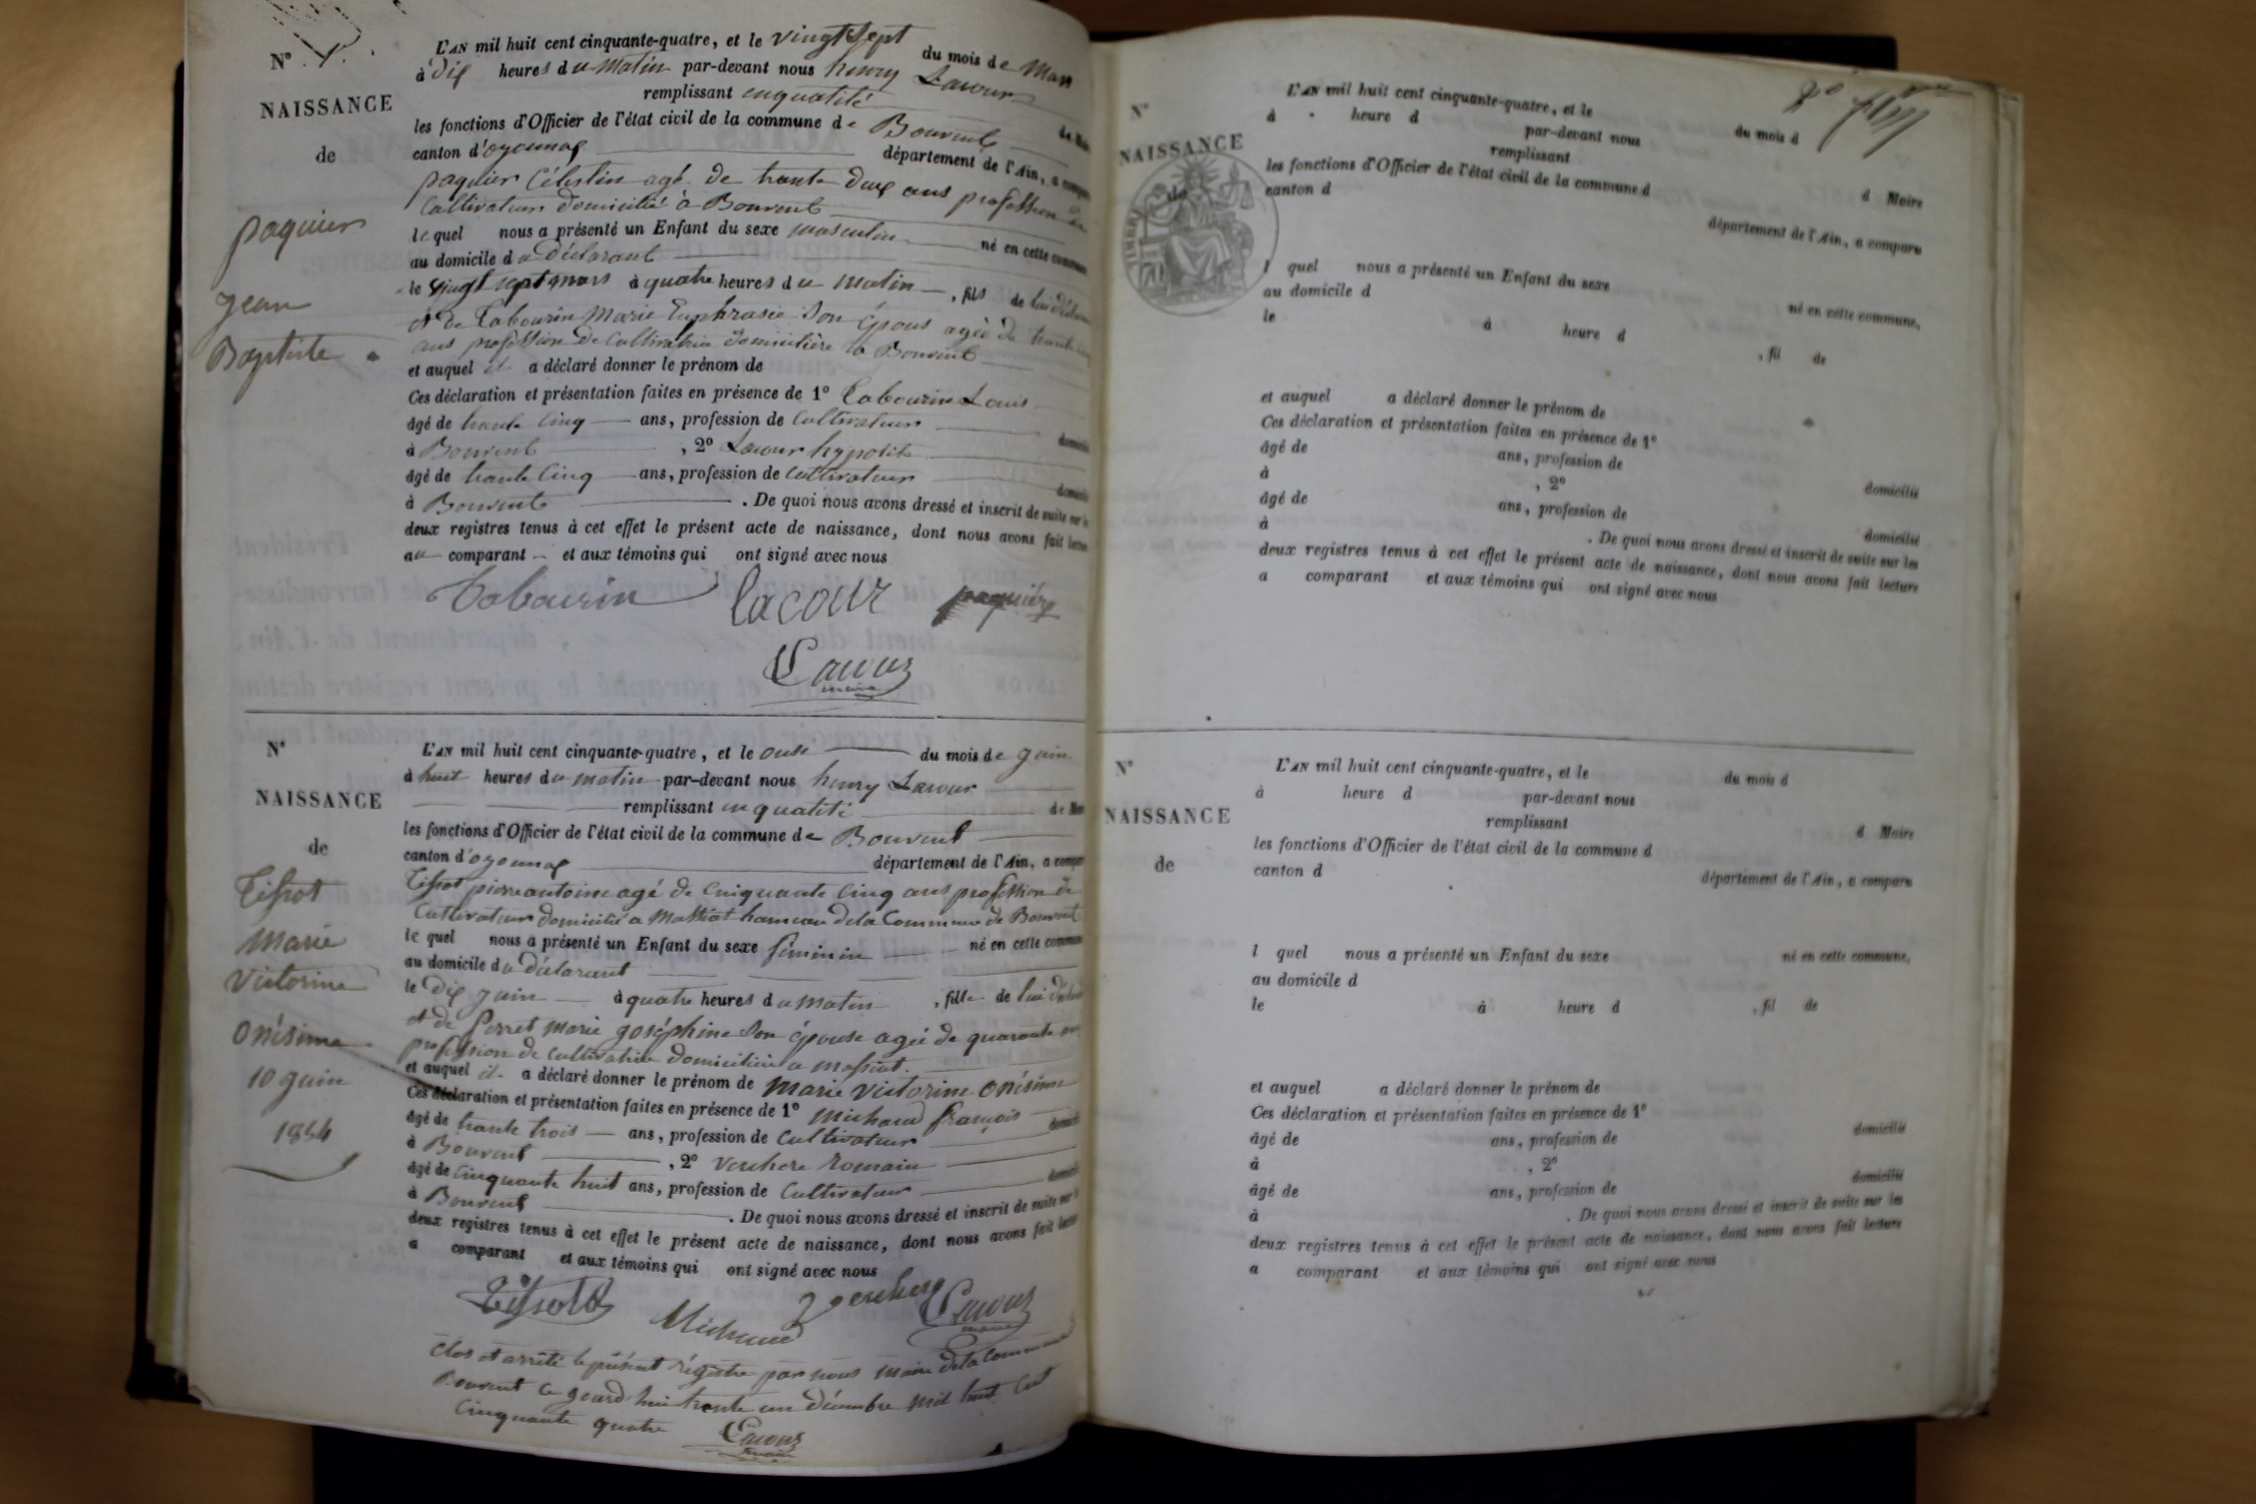 N°
NAISSANCE
de
paquier
Jean
Baptiste
L'AN mil huit cent cinquante-quatre, et le vingt sept du mois de Mars
à dix heures du Matin par-devant nous henry Lacour
remplissant en qualité de Maire
les fonctions d'Officier de l'état civil de la commune de Bouvent
canton d'oyonnax département de l'Ain, a comparu
paquier Célestin agé de trente deux ans profession de
Cultivateur domicilié à Bouvent
lequel nous a présenté un Enfant du sexe masculin né en cette commune
au domicile du déclarant
le vingt sept mars à quatre heures du matin, fils de lui déclarant
et de Tabourin Marie Euphrasie son épouse agée de trente
ans profession de cultivatrice domicilière à Bouvent
et auquel il a déclaré donner le prénom de
Ces déclaration et présentation faites en présence de 1° Tabourin Louis
âgé de trente cinq ans, profession de Cultivateur domicilié
à Bouvent, 2° Lacour hypolite
âgé de trente cinq ans, profession de cultivateur domicilié
à Bouvent. De quoi nous avons dressé et inscrit de suite sur les
deux registres tenus à cet effet le présent acte de naissance, dont nous avons fait lecture
au comparant et aux témoins qui ont signé avec nous
Tabourin lacour paquier
Lacour
maire
N°
NAISSANCE
de
Tissot
Marie
Victorine
Onésime
10 juin
1854
L'AN mil huit cent cinquante-quatre, et le onze du mois de juin
à huit heures du matin par-devant nous henry Lacour
remplissant en qualité de Maire
les fonctions d'Officier de l'état civil de la commune de Bouvent
canton d'oyonnax département de l'Ain, a comparu
Tissot pierre antoine agé de Cinquante Cinq ans profession de
Cultivateur domicilié a Massiat hameau de la Commune de Bouvent
lequel nous a présenté un Enfant du sexe féminin né en cette commune
au domicile du déclarant
le dix juin à quatre heures du matin, fille de lui déclarant
et de Perret Marie joséphine son épouse agée de quarante
profession de cultivatrice domicilière a massiat.
et auquel il a déclaré donner le prénom de Marie Victorine Onésime
Ces déclaration et présentation faites en présence de 1° Michaud françois
âgé de trente trois ans, profession de Cultivateur domicilié
à Bouvent, 2° Verchere Romain
âgé de Cinquante huit ans, profession de Cultivateur domicilié
à Bouvent. De quoi nous avons dressé et inscrit de suite sur les
deux registres tenus à cet effet le présent acte de naissance, dont nous avons fait lecture
a comparant et aux témoins qui ont signé avec nous
Tissot Michaud Verchere Lacour
maire
Clos et arrêté le présent régistre par nous maire de la commune
Bouvent ce jourd'hui trente un décembre mil huit cent
Cinquante quatre
Lacour
maire
N°
NAISSANCE
de
TIMBRE
L'AN mil huit cent cinquante-quatre, et le du mois d
à heure d par-devant nous
remplissant d Maire
les fonctions d'Officier de l'état civil de la commune d
canton d département de l'Ain, a comparu
l quel nous a présenté un Enfant du sexe né en cette commune,
au domicile d
le à heure d , fil de
et auquel a déclaré donner le prénom de
Ces déclaration et présentation faites en présence de 1°
âgé de ans, profession de domicilié
à , 2°
âgé de ans, profession de domicilié
à . De quoi nous avons dressé et inscrit de suite sur les
deux registres tenus à cet effet le présent acte de naissance, dont nous avons fait lecture
a comparant et aux témoins qui ont signé avec nous
N°
NAISSANCE
de
L'AN mil huit cent cinquante-quatre, et le du mois d
à heure d par-devant nous
remplissant d Maire
les fonctions d'Officier de l'état civil de la commune d
canton d département de l'Ain, a comparu
l quel nous a présenté un Enfant du sexe né en cette commune,
au domicile d
le à heure d , fil de
et auquel a déclaré donner le prénom de
Ces déclaration et présentation faites en présence de 1°
âgé de ans, profession de domicilié
à , 2°
âgé de ans, profession de domicilié
à . De quoi nous avons dressé et inscrit de suite sur les
deux registres tenus à cet effet le présent acte de naissance, dont nous avons fait lecture
a comparant et aux témoins qui ont signé avec nous